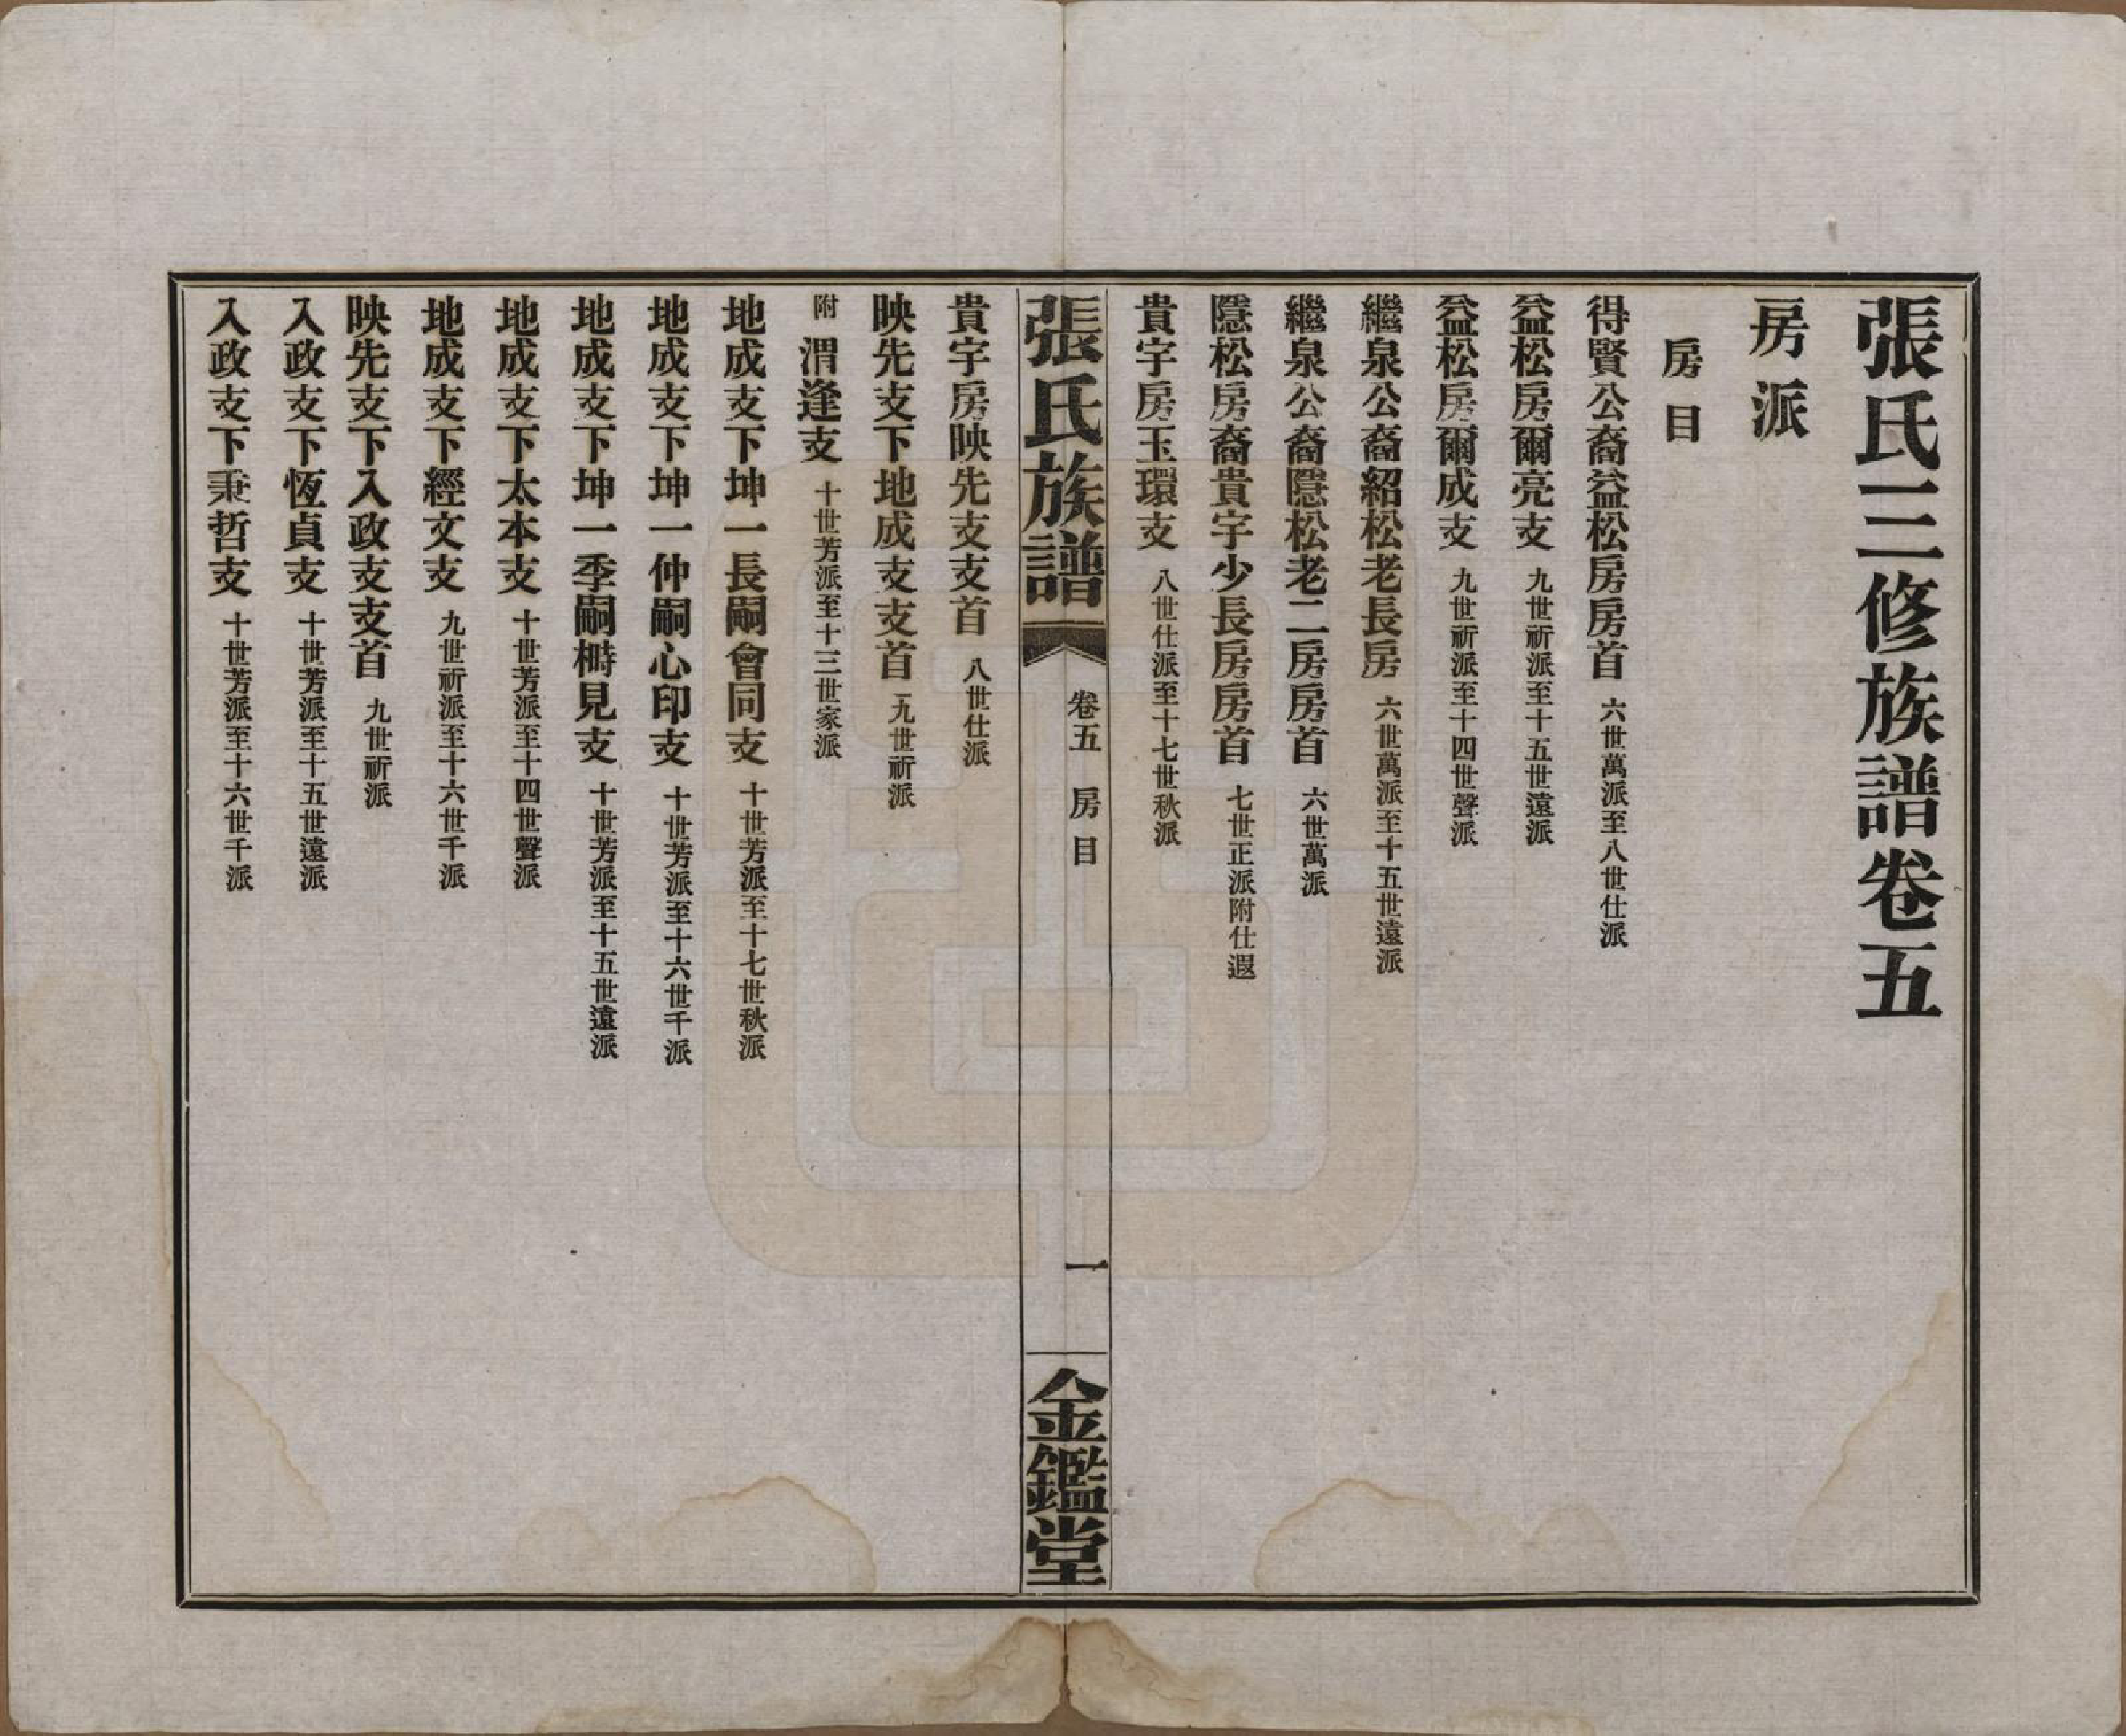 張氏三修族譜卷五
房派
房目
得賢公裔益松房房首 六世萬派至八世仕派
益松房爾亮支 九世祈派至十五世遠派
益松房爾成支 九世祈派至十四世聲派
繼泉公裔紹松老長房 六世萬派至十五世遠派
繼泉公裔隱松老二房房首 六世萬派
隱松房裔貴宇少長房房首 七世正派附仕遐
貴宇房玉環支 八世仕派至十七世秋派
張氏族譜 卷五 房目 一 金鑑堂
貴宇房映先支支首 八世仕派
映先支下地成支支首 九世祈派
附 渭逢支 十世芳派至十三世家派
地成支下坤一長嗣會同支 十世芳派至十七世秋派
地成支下坤一仲嗣心印支 十世芳派至十六世千派
地成支下坤一季嗣榯見支 十世芳派至十五世遠派
地成支下太本支 十世芳派至十四世聲派
地成支下經文支 九世祈派至十六世千派
映先支下入政支支首 九世祈派
入政支下恆貞支 十世芳派至十五世遠派
入政支下秉哲支 十世芳派至十六世千派